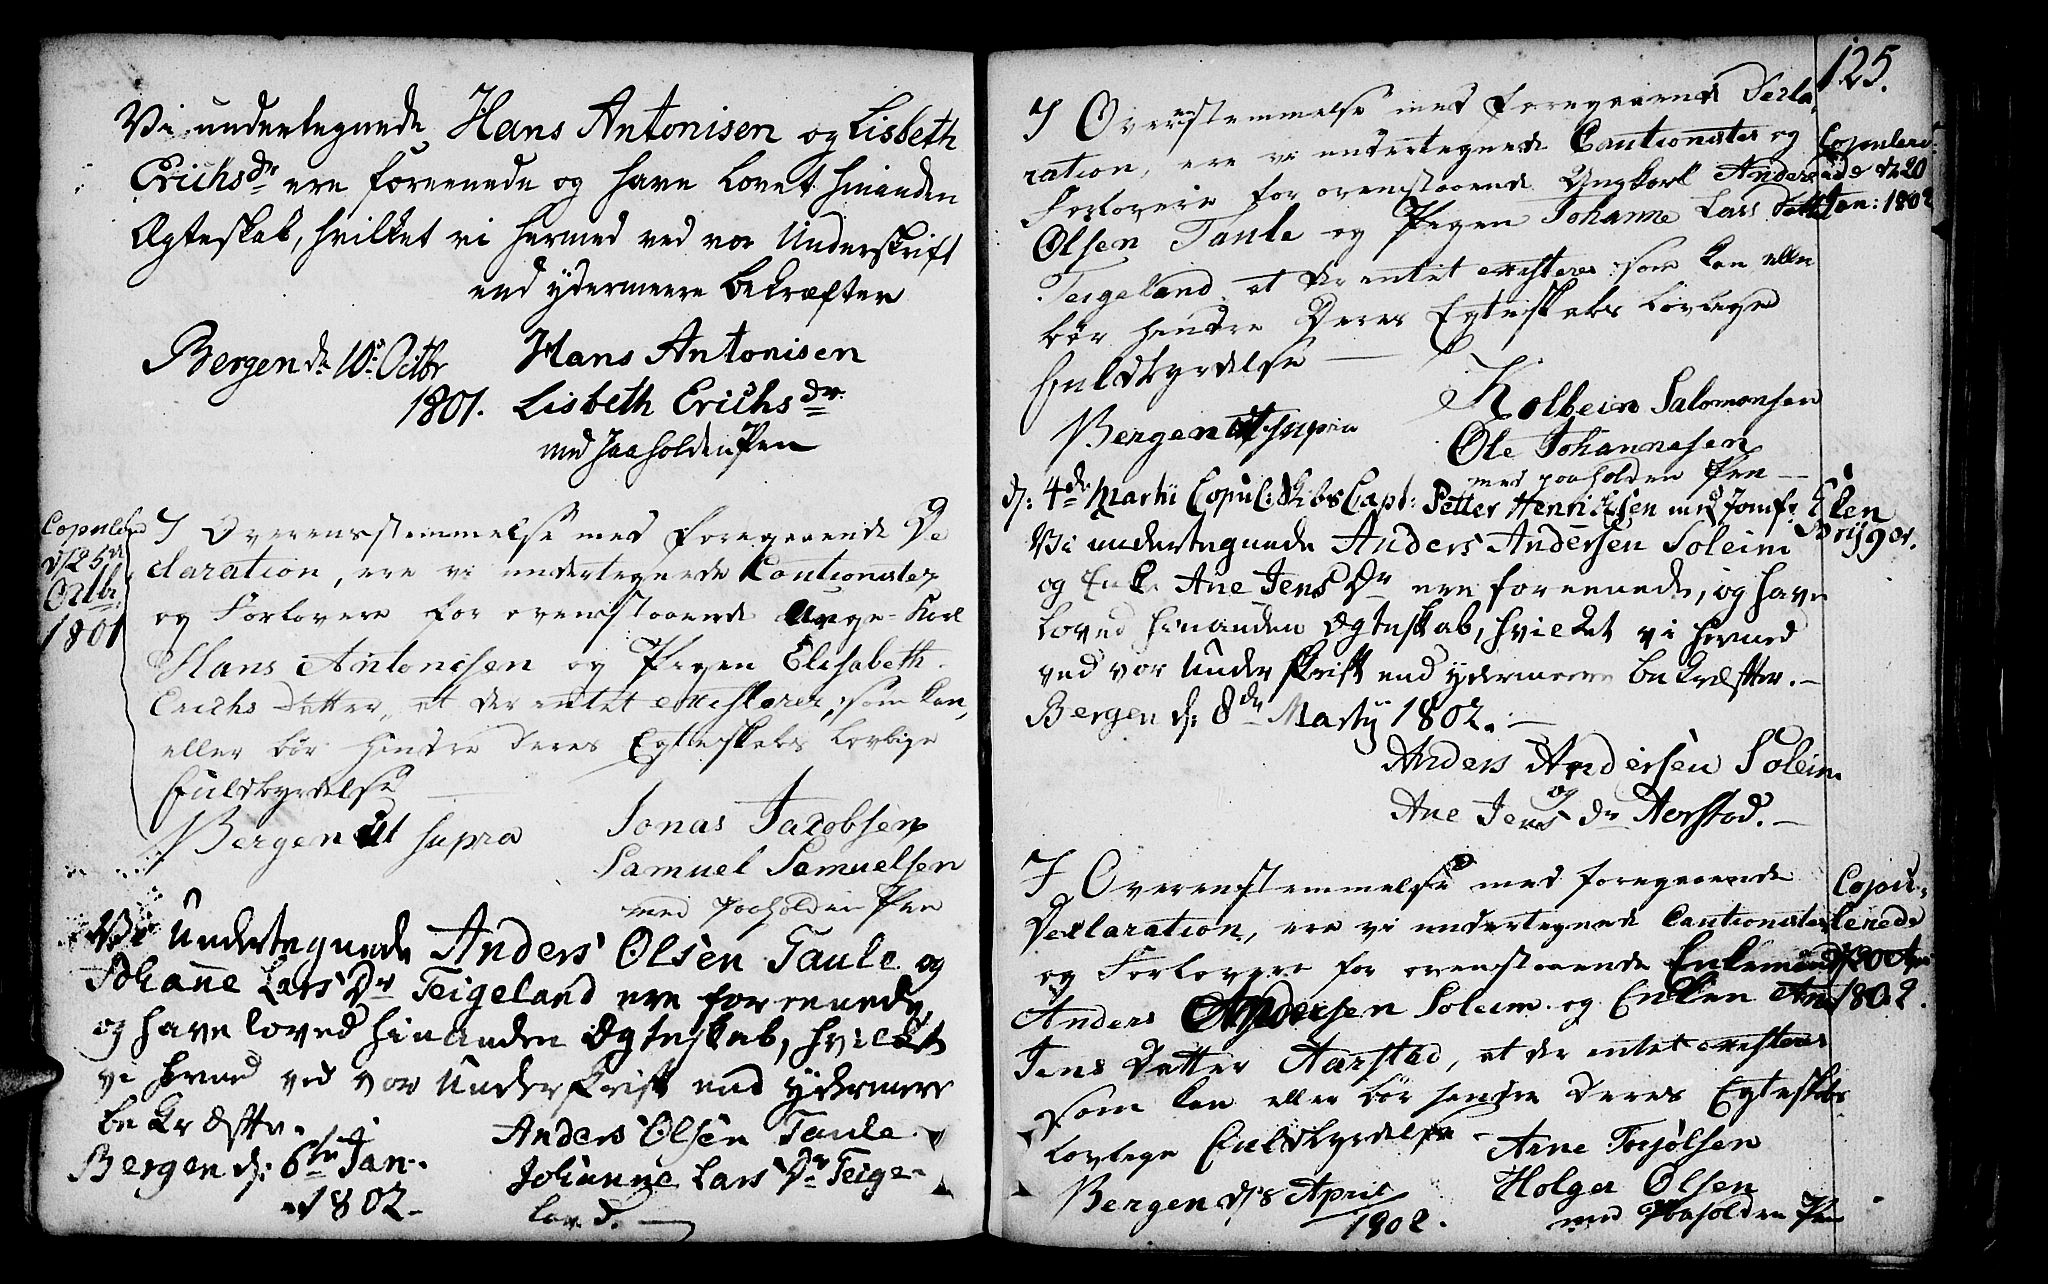 Vi undertegnede Hans Antonisen og Lisbeth
Erichsdr ere foreenede og have lovet hinanden
Ægteskab, hvilket vi hermed ved vor Underskrift
end ydermeere bekræfter
Bergen d. 10de Octbr Hans Antonisen
1801. Lisbeth Erichsdr
med paaholden Pen
Copulered
d 25de
Octbr.
1801
I Overensstemmelse med foregaaende De
claration, ere vi undertegnede Cautionister
og Forlovere for ovenstaaende Unge-Karl
Hans Antonisen og Pigen Elisabeth
Erichs Datter, at der intet existerer, som kan,
eller bør hindre deres Egteskabs lovlige
Fuldbyrdelse
Bergen ut supra Jonas Jacobsen
Samuel Samuelsen
med paaholden Pen
Vi Undertegnede Anders Olsen Taule og
Johañe Lars Dr Teigeland ere foreenede
og have loved hinanden Ægteskab, hvilket
vi hermed ved vor Underskrift end ydermere
bekræfter.
Bergen d: 6te Jan. Anders Olsen Taule
1802. Johanne Lars Dr Teige-
land.
125.
I Overenstemmelse med foregaaende Decla-
ration, ere vi undertegnede Cautionister og
Forlovere for ovenstaaende Ungkarl Anders
Olsen Taule og Pigen Johanne Lars Datter
Teigeland, at der intet existerer som kan eller
bør hindre Deres Egteskabs lovlige
Fuldbyrdelse
Copulere-
de d 20
Jan: 1802
Bergen ut supra Kolbein Salomonsen
Ole Johannesen
med paaholden Pen
d: 4de Martii Copul: Skibs Capt: Petter Henrichsen med Jomfr. Elen
Bryger.
Vi undertegnede Anders Andersen Soleim
og Enke Ane Jens Dr ere foreenede, og have
loved hinanden Ægteskab, hvilket vi hermed
ved vor Underskrift end ydermeere bekræfter.
Bergen d: 8de Martij 1802.
Anders Andersen Soleim
og
Ane Jens Dr Aarstad.
I Overenstemmelse med foregaaende
Declaration, ere vi undertegnede Cautionister
og Forlovere for ovenstaaende Enkemand
Anders Andersen Soleim og Enken Ane
Jens Datter Aarstad, at der intet existerer
som kan eller bør hindre deres Egteskabs
lovlige Fuldbyrdelse
Copu-
lerede
d 20 Apr
1802.
Arne Torjölsen
Bergen d 8 April Holger Olsen
1802. med Paaholden Pen